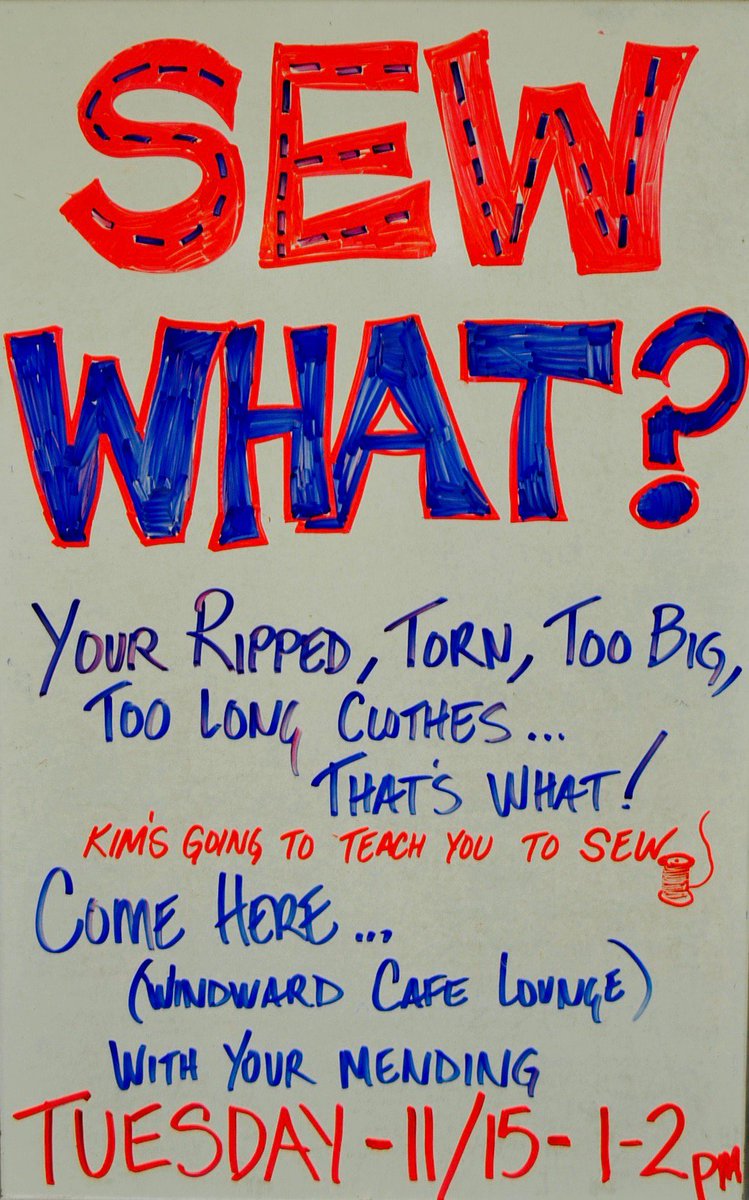 SEW
WHAT?
YOUR RIPPED, TORN, TOO BIG,
TOO LONG CLOTHES...
THAT'S WHAT!
KIM'S GOING TO TEACH YOU TO SEW
COME HERE...
(WINDWARD CAFE LOUNGE)
WITH YOUR MENDING
TUESDAY-11/15-1-2PM